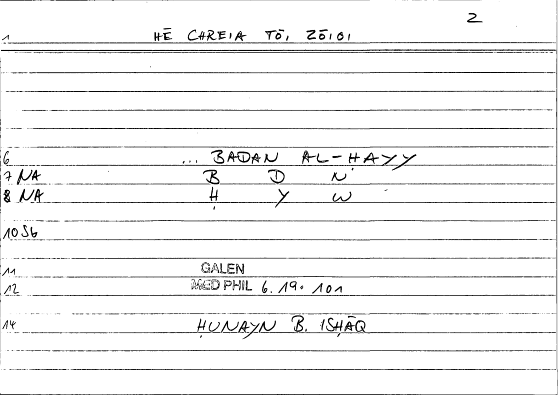 2
1 HĒ CHREIA TŌ, ZŌ,O,
6 ... BADAN AL-HAYY
7 NA B D N
8 NA Ḥ Y W
10 Sb
11 GALEN
12 MED PHIL 6.19.101
14 ḤUNAYN B. ISḤĀQ